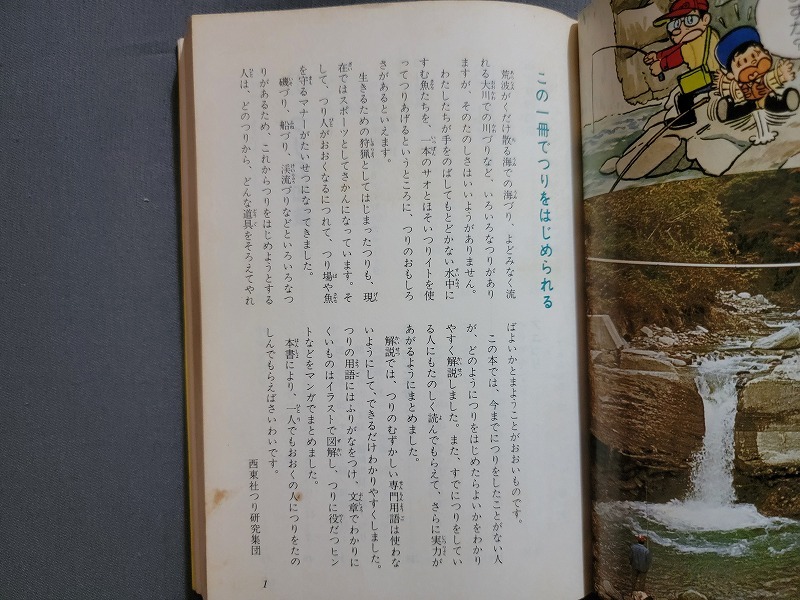 この一冊でつりをはじめられる
荒波がくだけ散る海での海づり、よどみなく流
れる大川での川づりなど、いろいろなつりがあり
ますが、そのたのしさはいいようがありません。
わたしたちが手をのばしてもとどかない水中に
すむ魚たちを、一本のサオとほそいつりイトを使
ってつりあげるというところに、つりのおもしろ
さがあるといえます。
生きるための狩猟としてはじまったつりも、現
在ではスポーツとしてさかんになっています。そ
して、つり人がおおくなるにつれて、つり場や魚
を守るマナーがたいせつになってきました。
磯づり、船づり、渓流づりなどといろいろなつ
りがあるため、これからつりをはじめようとする
人は、どのつりから、どんな道具をそろえてやれ
ばよいかとまようことがおおいものです。
この本では、今までにつりをしたことがない人
が、どのようにつりをはじめたらよいかをわかり
やすく解説しました。また、すでにつりをしてい
る人にもたのしく読んでもらえて、さらに実力が
あがるようにまとめました。
解説では、つりのむずかしい専門用語は使わな
いようにして、できるだけわかりやすくしました。
つりの用語にはふりがなをつけ、文章でわかりに
くいものはイラストで図解し、つりに役だつヒン
トなどをマンガでまとめました。
本書により、一人でもおおくの人につりをたの
しんでもらえばさいわいです。
西東社つり研究集団
1